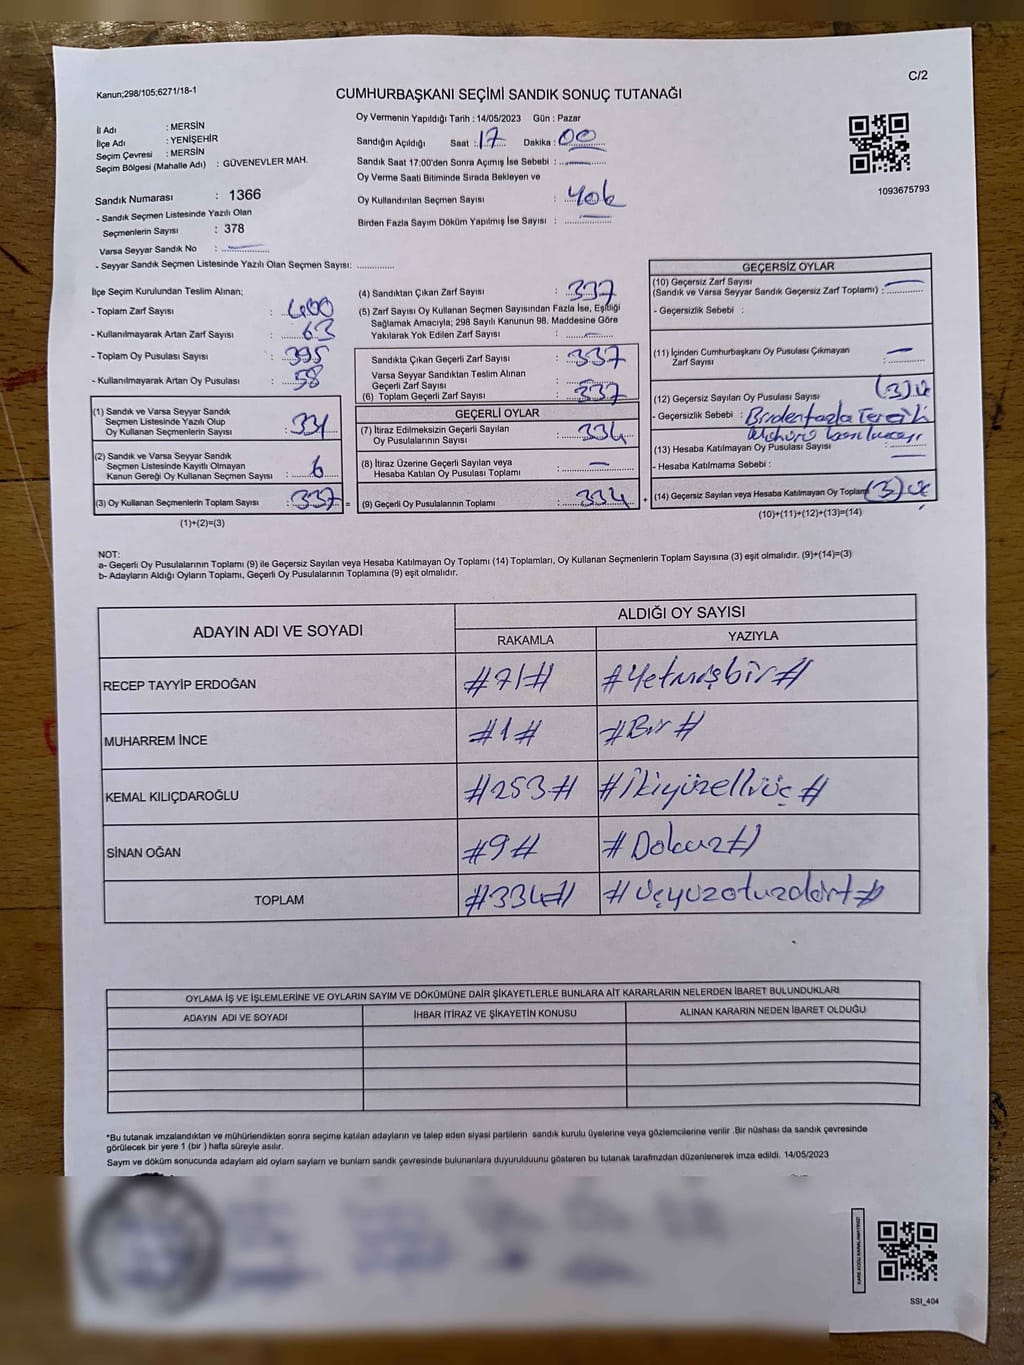 C/2
Kanun;298/105;6271/18-1
CUMHURBAŞKANI SEÇİMİ SANDIK SONUÇ TUTANAĞI
İl Adı : MERSİN
İlçe Adı : YENİŞEHİR
Seçim Çevresi : MERSİN
Seçim Bölgesi (Mahalle Adı) : GÜVENEVLER MAH.
Sandık Numarası : 1366
- Sandık Seçmen Listesinde Yazılı Olan
Seçmenlerin Sayısı : 378
Varsa Seyyar Sandık No :
- Seyyar Sandık Seçmen Listesinde Yazılı Olan Seçmen Sayısı: ..............
Oy Vermenin Yapıldığı Tarih : 14/05/2023 Gün : Pazar
Sandığın Açıldığı Saat : 17 Dakika : 00
Sandık Saat 17:00'den Sonra Açımış İse Sebebi :
Oy Verme Saati Bitiminde Sırada Bekleyen ve
Oy Kullandırılan Seçmen Sayısı : Yok
Birden Fazla Sayım Döküm Yapılmış İse Sayısı :
1093675793
İlçe Seçim Kurulundan Teslim Alınan;
- Toplam Zarf Sayısı : 400
- Kullanılmayarak Artan Zarf Sayısı : 63
- Toplam Oy Pusulası Sayısı : 395
- Kullanılmayarak Artan Oy Pusulası : 58
(1) Sandık ve Varsa Seyyar Sandık
Seçmen Listesinde Yazılı Olup
Oy Kullanan Seçmenlerin Sayısı : 331
(2) Sandık ve Varsa Seyyar Sandık
Seçmen Listesinde Kayıtlı Olmayan
Kanun Gereği Oy Kullanan Seçmen Sayısı : 6
(3) Oy Kullanan Seçmenlerin Toplam Sayısı : 337 =
(1)+(2)=(3)
(4) Sandıktan Çıkan Zarf Sayısı : 337
(5) Zarf Sayısı Oy Kullanan Seçmen Sayısından Fazla İse, Eşitliği
Sağlamak Amacıyla; 298 Sayılı Kanunun 98. Maddesine Göre
Yakılarak Yok Edilen Zarf Sayısı :
Sandıkta Çıkan Geçerli Zarf Sayısı : 337
Varsa Seyyar Sandıktan Teslim Alınan
Geçerli Zarf Sayısı :
(6) Toplam Geçerli Zarf Sayısı : 337
GEÇERLİ OYLAR
(7) İtiraz Edilmeksizin Geçerli Sayılan
Oy Pusulalarının Sayısı : 334
(8) İtiraz Üzerine Geçerli Sayılan veya
Hesaba Katılan Oy Pusulası Toplamı : —
(9) Geçerli Oy Pusulalarının Toplamı : 334 +
GEÇERSİZ OYLAR
(10) Geçersiz Zarf Sayısı
(Sandık ve Varsa Seyyar Sandık Geçersiz Zarf Toplamı) : —
- Geçersizlik Sebebi :
(11) İçinden Cumhurbaşkanı Oy Pusulası Çıkmayan
Zarf Sayısı : —
(12) Geçersiz Sayılan Oy Pusulası Sayısı (3) üç
- Geçersizlik Sebebi : Birden fazla Tercih
Mührü basılması
(13) Hesaba Katılmayan Oy Pusulası Sayısı : —
- Hesaba Katılmama Sebebi :
(14) Geçersiz Sayılan veya Hesaba Katılmayan Oy Toplamı (3) üç
(10)+(11)+(12)+(13)=(14)
NOT:
a- Geçerli Oy Pusulalarının Toplamı (9) ile Geçersiz Sayılan veya Hesaba Katılmayan Oy Toplamı (14) Toplamları, Oy Kullanan Seçmenlerin Toplam Sayısına (3) eşit olmalıdır. (9)+(14)=(3)
b- Adayların Aldığı Oyların Toplamı, Geçerli Oy Pusulalarının Toplamına (9) eşit olmalıdır.
ADAYIN ADI VE SOYADI ALDIĞI OY SAYISI
RAKAMLA YAZIYLA
RECEP TAYYİP ERDOĞAN #71# #Yetmişbir#
MUHARREM İNCE #1# #Bir#
KEMAL KILIÇDAROĞLU #253# #İkiyüzelliüç#
SİNAN OĞAN #9# #Dokuz#
TOPLAM #334# #üçyüzotuzdört#
OYLAMA İŞ VE İŞLEMLERİNE VE OYLARIN SAYIM VE DÖKÜMÜNE DAİR ŞİKAYETLERLE BUNLARA AİT KARARLARIN NELERDEN İBARET BULUNDUKLARI
ADAYIN ADI VE SOYADI İHBAR İTİRAZ VE ŞİKAYETİN KONUSU ALINAN KARARIN NEDEN İBARET OLDUĞU
*Bu tutanak imzalandıktan ve mühürlendikten sonra seçime katılan adayların ve talep eden siyasi partilerin sandık kurulu üyelerine veya gözlemcilerine verilir .Bir nüshası da sandık çevresinde
görülecek bir yere 1 (bir ) hafta süreyle asılır.
Sayım ve döküm sonucunda adayların ald oyların sayların ve bunların sandık çevresinde bulunanlara duyurulduunu gösteren bu tutanak tarafmzdan düzenlenerek imza edildi. 14/05/2023
SSI_404